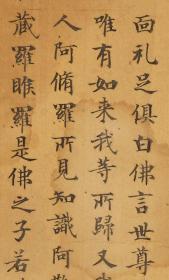 面礼足俱白佛言世尊
唯有如来我等所歸又
人阿脩羅所見知識阿
藏羅睺羅是佛之子若